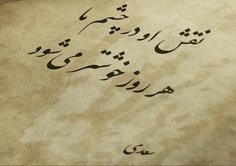 نقش او در چشم ما
هر روز خوشتر می شود
سعدی